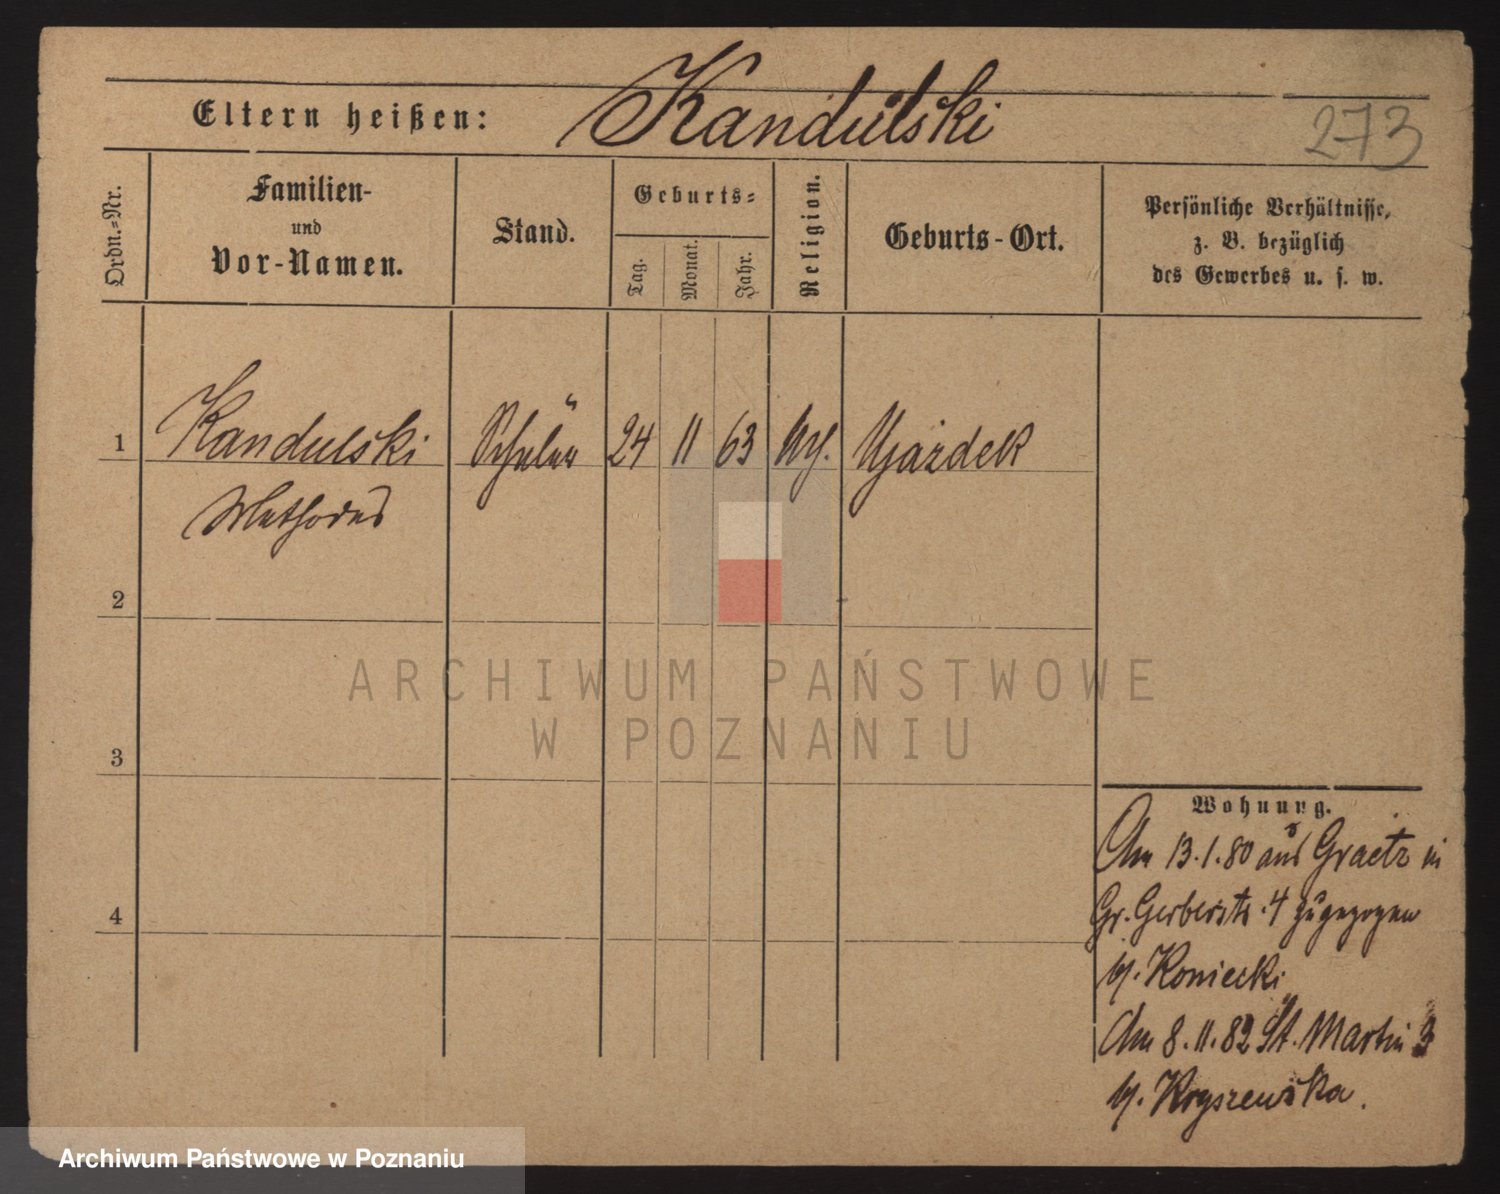 Eltern heißen: Kandulski
273
Ordn.-Nr.
Familien-
und
Vor-Namen.
Stand.
Geburts-
Tag.
Monat.
Jahr.
Religion.
Geburts-Ort.
Persönliche Verhältnisse,
z. B. bezüglich
des Gewerbes u. s. w.
1 Kandulski Schüler 24 11 63 Ujazdek
Methodus
2
3
4
ARCHIWUM PAŃSTWOWE
W POZNANIU
Wohnung.
Am 13.1.80 aus Graetz in
Gr. Gerberstr. 4 zugezogen
b/. Koniecki
Am 8.11.82 St. Martin 3
b/. Kryszewska.
Archiwum Państwowe w Poznaniu